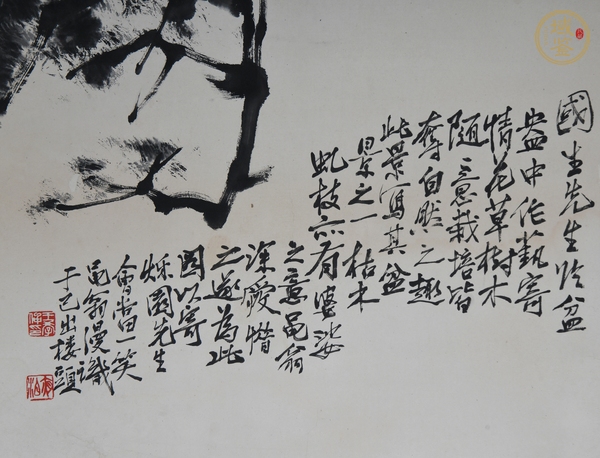 國生先生於盆
盎中作藝寄
情花草樹木
隨意栽培皆
奪自然之趣
此景寫其盆
景之一枯木
虬枝亦有婆娑
之意黽翁
深愛惜
之遂為此
圖以寄
爍園先生
當一笑
黽翁漫識
于己出樓頭